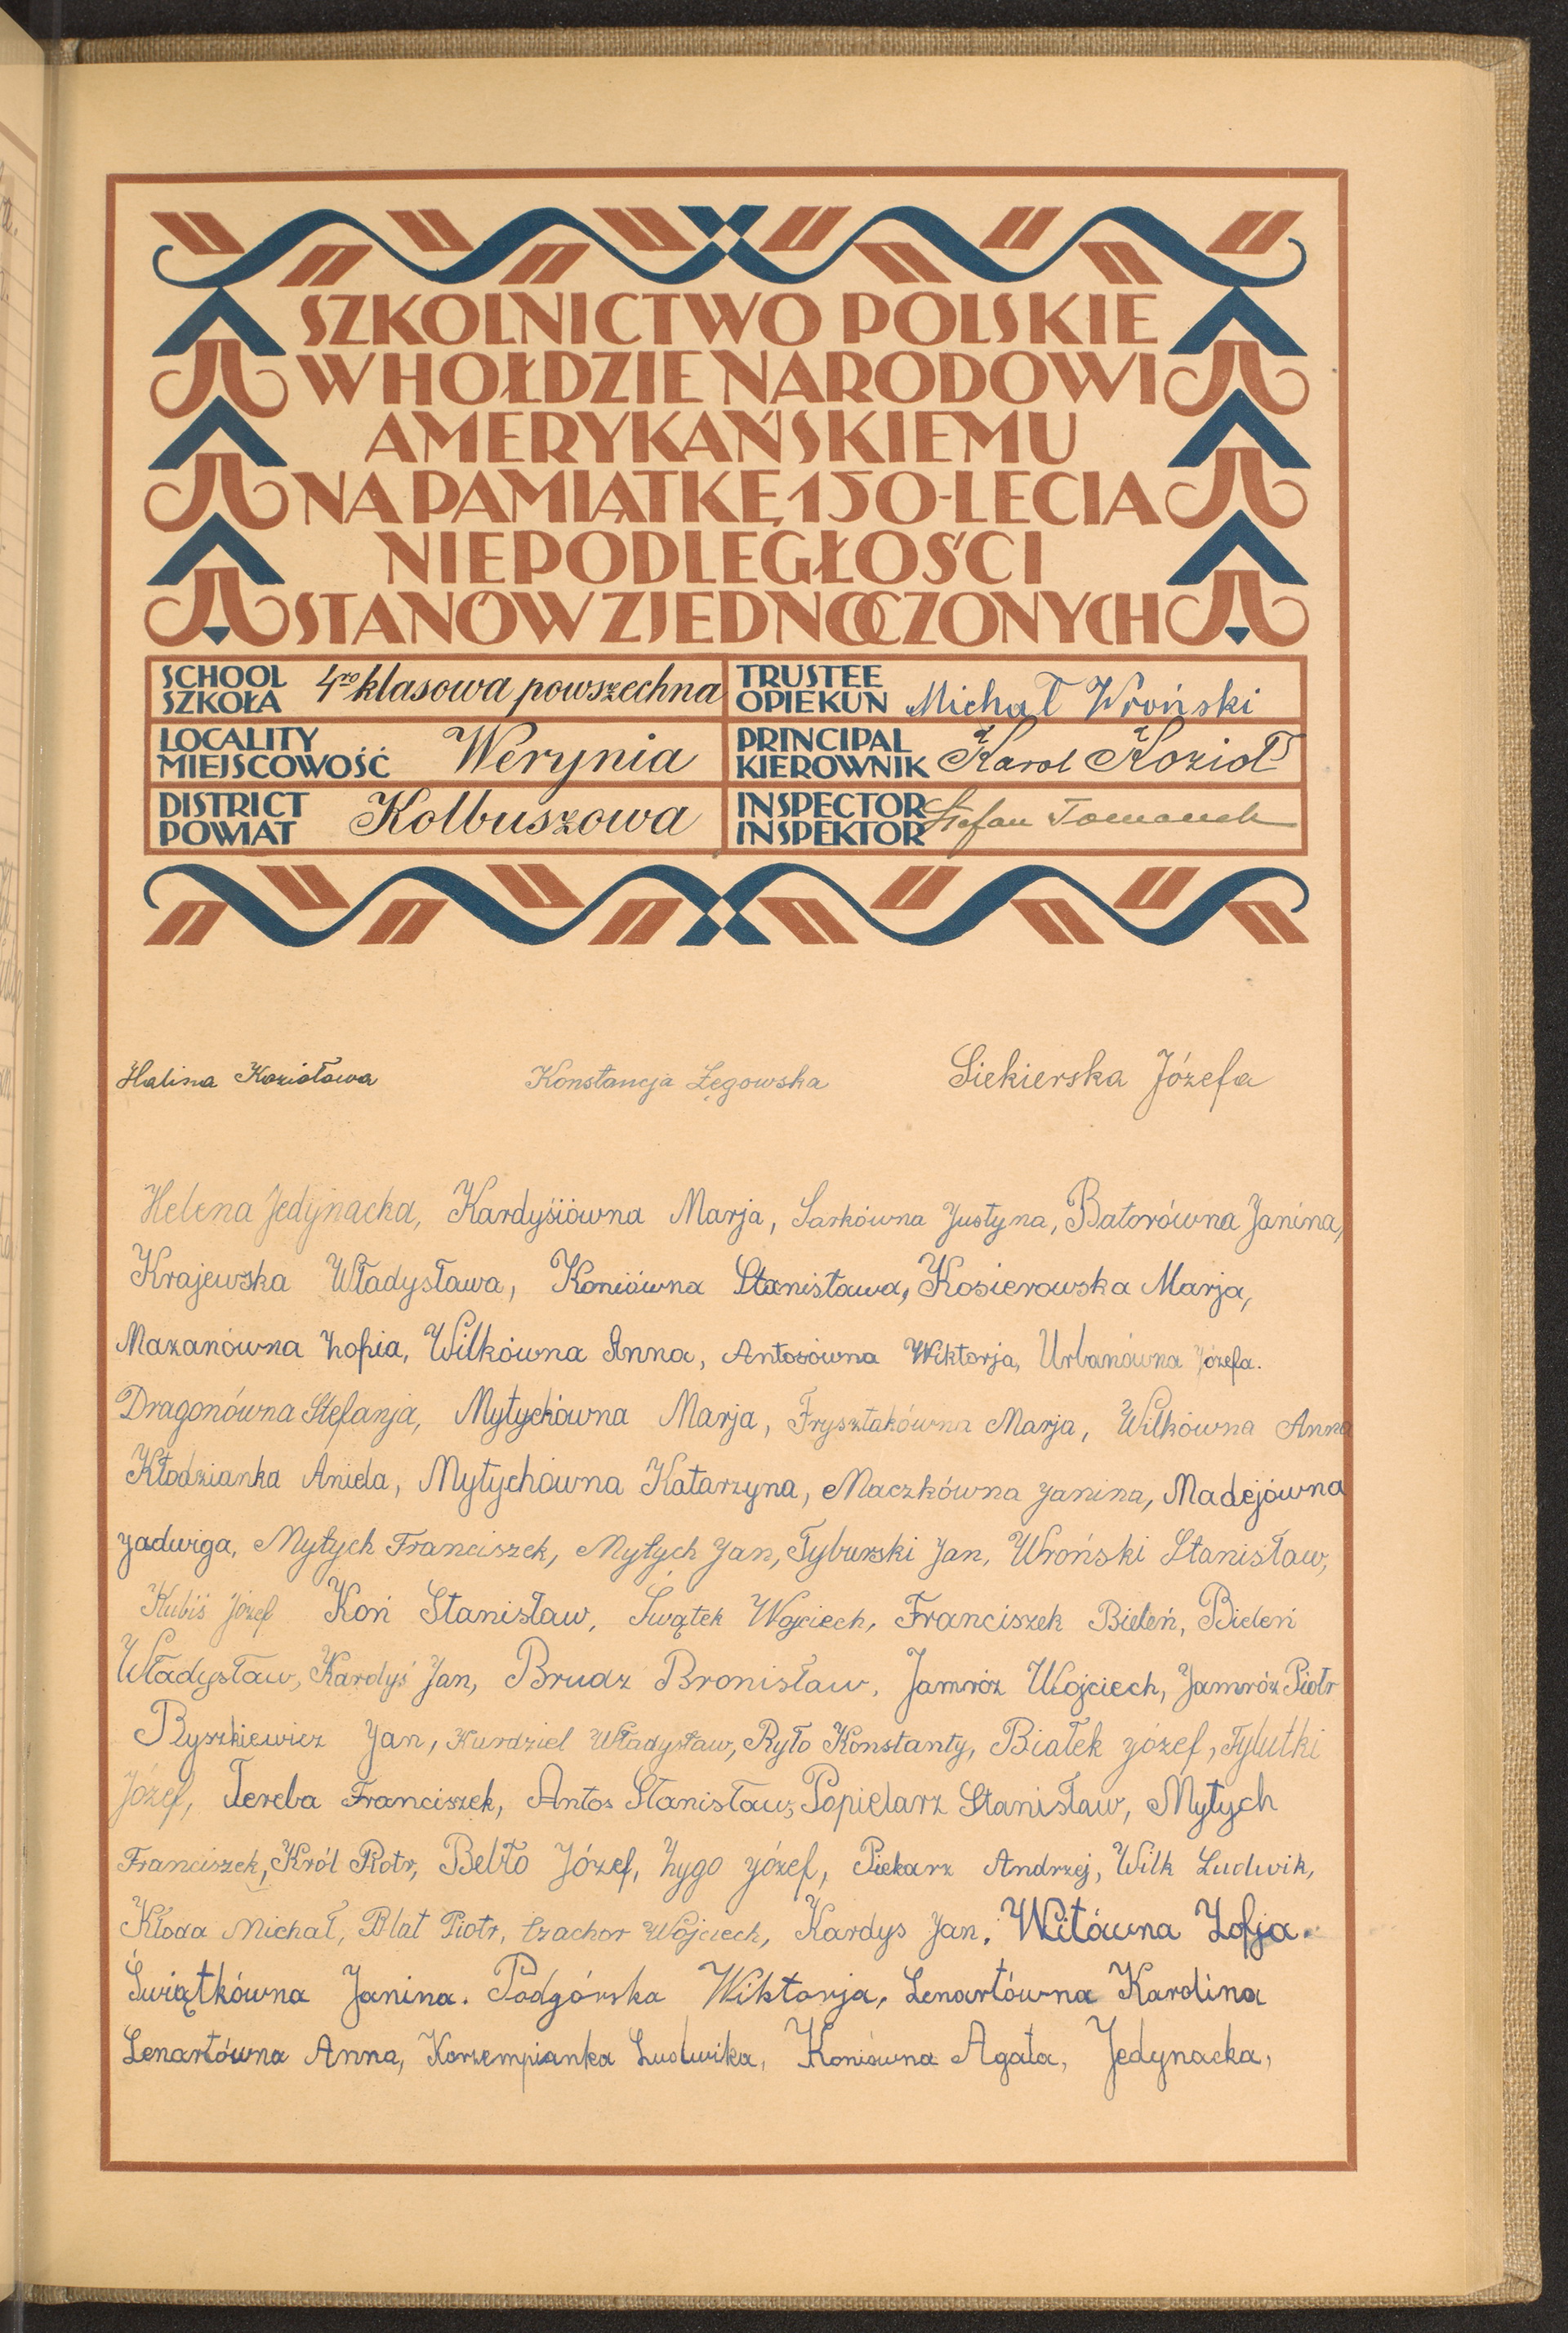 SZKOLNICTWO POLSKIE
W HOŁDZIE NARODOWI
AMERYKAŃSKIEMU
NA PAMIĄTKĘ 150-LECIA
NIEPODLEGŁOŚCI
STANÓW ZJEDNOCZONYCH
SCHOOL
SZKOŁA 4ro klasowa powszechna
TRUSTEE
OPIEKUN Michał Wroński
LOCALITY
MIEJSCOWOŚĆ Werynia
PRINCIPAL
KIEROWNIK Karol Kozioł
DISTRICT
POWIAT Kolbuszowa
INSPECTOR
INSPEKTOR Stefan Tomanek
Halina Koziołowa Konstancja Łęgowska Siekierska Józefa
Helena Jedynacka, Kardysiówna Marja, Sarkówna Justyna, Batorówna Janina,
Krajewska Władysława, Koniówna Stanisława, Kosierowska Marja,
Mazanówna Zofia, Wilkówna Anna, Antosówna Wiktorja, Urbanówna Józefa.
Dragonówna Stefanja, Mytychówna Marja, Frysztakówna Marja, Wilkówna Anna
Kłodzianka Aniela, Mytychówna Katarzyna, Maczkówna Janina, Madejówna
Jadwiga, Mytych Franciszek, Mytych Jan, Tyburski Jan, Wroński Stanisław,
Kubiś Józef Koń Stanisław, Świątek Wojciech, Franciszek Bieleń, Bieleń
Władysław, Kardyś Jan, Brudz Bronisław, Jamróz Wojciech, Jamróz Piotr
Ryszkiewicz Jan, Kurdziel Władysław, Ryło Konstanty, Białek Józef, Tylutki
Józef, Tereba Franciszek, Antos Stanisław, Popielarz Stanisław, Mytych
Franciszek, Król Piotr, Bełto Józef, Zygo Józef, Piekarz Andrzej, Wilk Ludwik,
Kłoda Michał, Blat Piotr, Czachor Wojciech, Kardys Jan, Witówna Zofja.
Świątkówna Janina. Podgórska Wiktorja, Lenartówna Karolina
Lenartówna Anna, Korzempianka Ludwika, Koniówna Agata, Jedynacka,